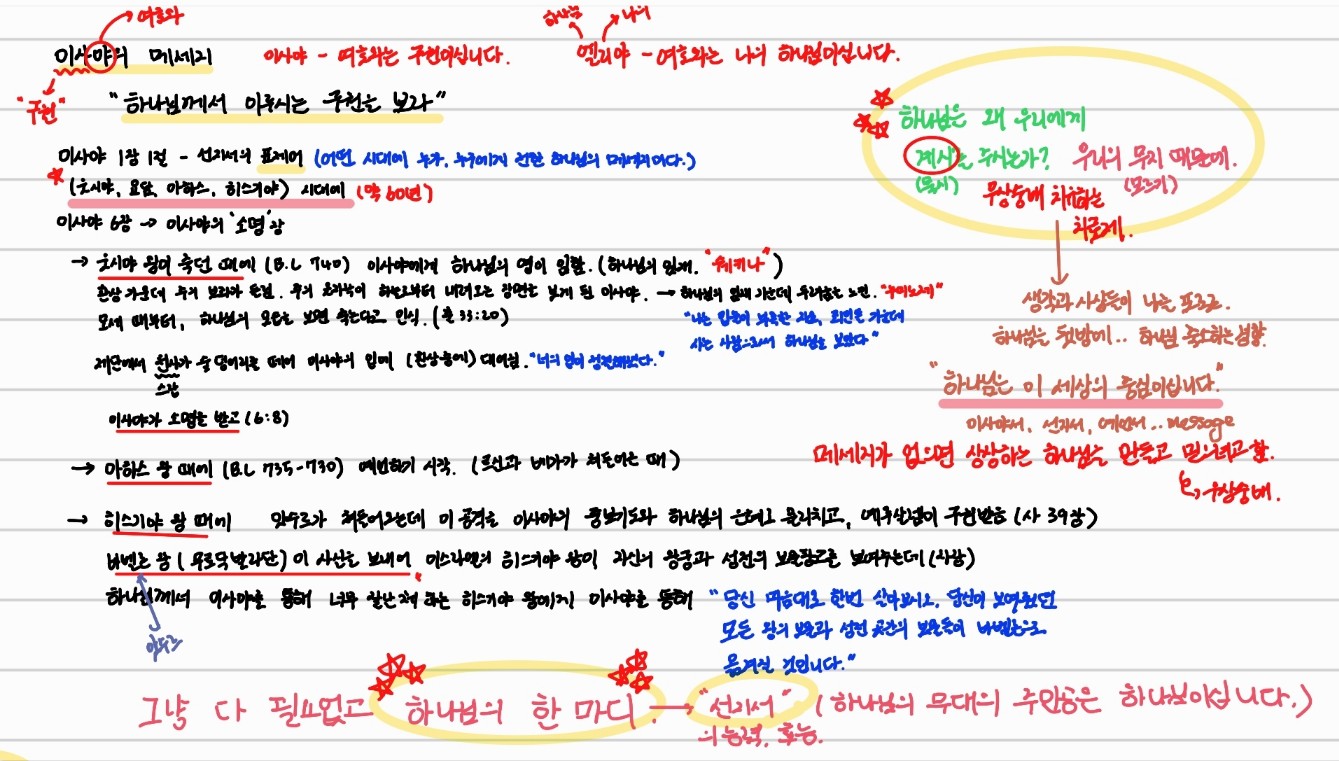 여호와
하나님 나의
이사야의 메세지 이사야 - 여호와는 구원이십니다. 엘리야 - 여호와는 나의 하나님이십니다.
"구원"
"하나님께서 이루시는 구원을 보라"
하나님은 왜 우리에게
계시를 주시는가? 우리의 무지 때문에.
(묵시) (모르기)
우상숭배 치유하는
치료제.
이사야 1장 1절 - 선지서의 표제어 (어떤 시대에 누가, 누구에게 전한 하나님의 메세지이다.)
(웃시야, 요담, 아하스, 히스기야) 시대에 (약 60년)
이사야 6장 → 이사야의 '소명'장
→ 웃시야 왕이 죽던 때에 (B.C 740) 이사야에게 하나님의 영이 임함. (하나님의 임재. "쉐키나")
환상 가운데 주의 보좌가 들림. 주의 옷자락이 하늘로부터 내려오는 광경을 보게 된 이사야. → 하나님의 임재 가운데
모세 때부터, 하나님의 모습을 보면 죽는다고 인식. (출 33:20)
"나는 입술이 부족한 자요, 죄인들 가운데
사는 사람으로서 하나님을 보았다"
제단에서 천사가 숯 덩어리를 떼어 이사야의 입에 (환상중에) 대어짐. "너의 입이 성결해졌다."
스랍
이사야가 소명을 받고 (6:8)
생각과 사상들이 나를 포로로.
하나님을 뒷방에.. 하나님 축소하는 경향.
"하나님은 이 세상의 중심이십니다."
이사야서, 선지서, 예언서.. message
메세지가 없으면 상상하는 하나님을 만들고 믿으려고 함.
우상숭배.
→ 아하스 왕 때에 (B.C 735-730) 예언하기 시작. (르신과 베가가 쳐들어온 때)
→ 히스기야 왕 때에 앗수르가 쳐들어오는데 이 공격을 이사야의 중보기도와 하나님의 은혜로 물리치고, 예루살렘이 구원받음 (사 39장)
바벨론 왕 (므로닥발라단)이 사신을 보내어, 이스라엘의 히스기야 왕이 자신의 왕궁과 성전의 보물창고를 보여주는데 (자랑)
하나님께서 이사야를 통해 너무 잘난 척 하는 히스기야 왕에게 이사야를 통해 "당신 마음대로 한번 살아보시오. 당신이 보여줬던
모든 왕의 보물과 성전 곳간의 보물들이 바벨론으로
옮겨질 것입니다."
앗수르
그냥 다 필요없고 하나님의 한 마디. → "선지서" (하나님의 무대의 주인공은 하나님이십니다.)
의 능력, 효능.